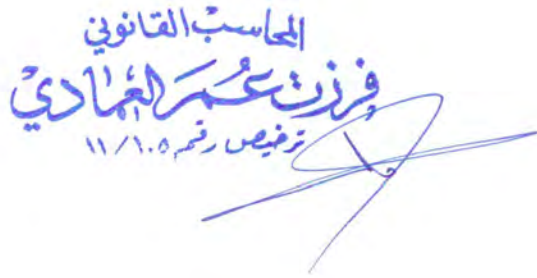 المحاسب القانوني
فرزت عمر العمادي
ترخيص رقم ١١/١٠٥